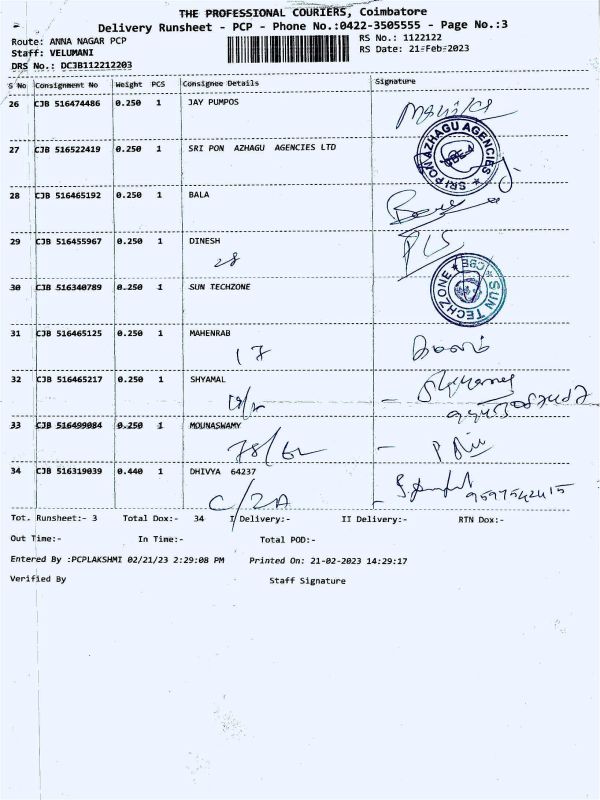 THE PROFESSIONAL COURIERS, Coimbatore
Delivery Runsheet - PCP - Phone No.:0422-3505555 - Page No.:3
Route: ANNA NAGAR PCP
RS No.: 1122122
Staff: VELUMANI
RS Date: 21-Feb-2023
DRS No.: DCJB112212203
S No Consignment No Weight PCS Consignee Details Signature
26 CJB 516474486 0.250 1 JAY PUMPOS
27 CJB 516522419 0.250 1 SRI PON AZHAGU AGENCIES LTD
SRI PON AZHAGU AGENCIES
CBE
28 CJB 516465192 0.250 1 BALA
29 CJB 516455967 0.250 1 DINESH
28
30 CJB 516340789 0.250 1 SUN TECHZONE
SUN TECHZONE
CBE
31 CJB 516465125 0.250 1 MAHENRAB
17
32 CJB 516465217 0.250 1 SHYAMAL
33 CJB 516499084 0.250 1 MOUNASWAMY
34 CJB 516319039 0.440 1 DHIVYA 64237
C/2A
9597542415
Tot. Runsheet:- 3 Total Dox:- 34 I Delivery:- II Delivery:- RTN Dox:-
Out Time:- In Time:- Total POD:-
Entered By :PCPLAKSHMI 02/21/23 2:29:08 PM Printed On: 21-02-2023 14:29:17
Verified By Staff Signature